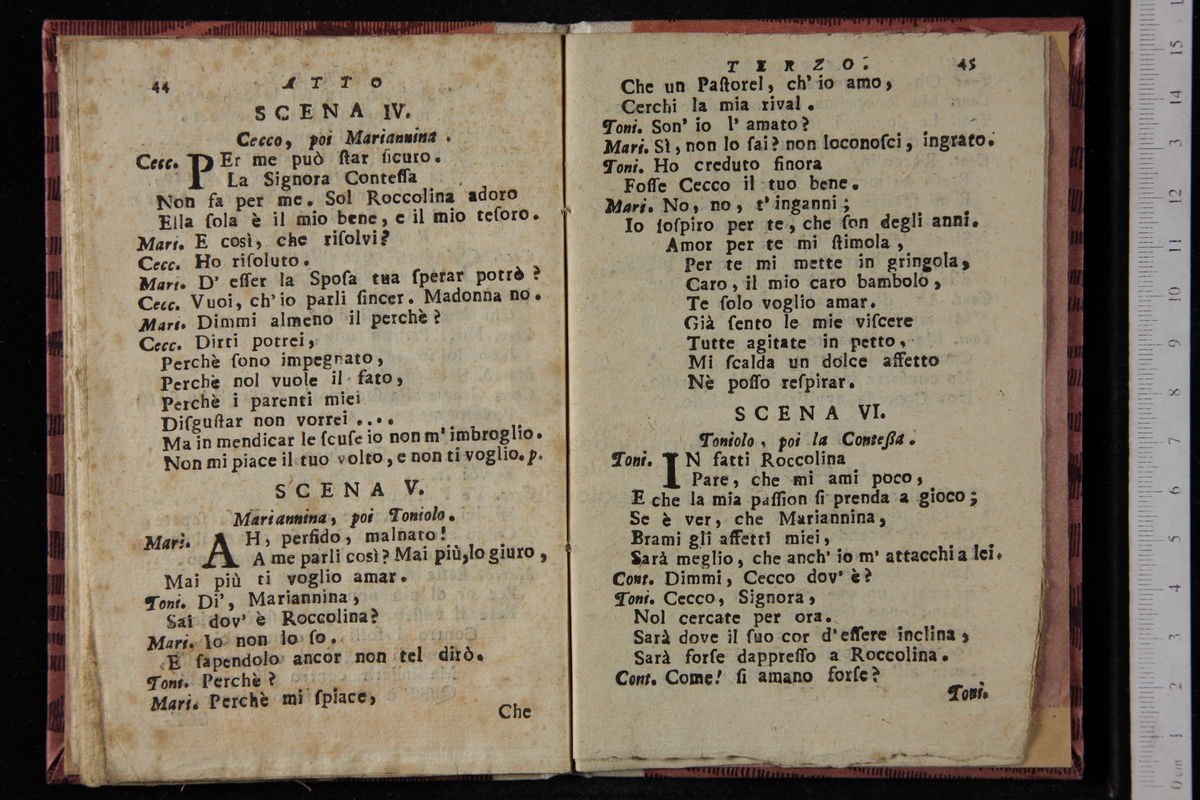 44 ATTO
SCENA IV.
Cecco, poi Mariannina.
Cecc. PEr me può ſtar ſicuro.
La Signora Conteſſa
Non fa per me. Sol Roccolina adoro
Ella ſola è il mio bene, e il mio teſoro.
Mari. E così, che riſolvi?
Cecc. Ho riſoluto.
Mari. D' eſſer la Spoſa tua ſperar potrò?
Cecc. Vuoi, ch'io parli ſincer. Madonna no.
Mari. Dimmi almeno il perchè?
Cecc. Dirti potrei,
Perchè ſono impegnato,
Perchè nol vuole il fato,
Perchè i parenti miei
Diſguſtar non vorrei ....
Ma in mendicar le ſcuſe io non m'imbroglio.
Non mi piace il tuo volto, e non ti voglio. p.
SCENA V.
Mariannina, poi Toniolo.
Mari. AH, perfido, malnato!
A me parli così? Mai più, lo giuro,
Mai più ti voglio amar.
Toni. Di', Mariannina,
Sai dov' è Roccolina?
Mari. Io non lo ſo.
E ſapendolo ancor non tel dirò.
Toni. Perchè?
Mari. Perchè mi ſpiace,
Che
TERZO. 45
Che un Paſtorel, ch' io amo,
Cerchi la mia rival.
Toni. Son' io l' amato?
Mari. Sì, non lo ſai? non loconoſci, ingrato.
Toni. Ho creduto finora
Foſſe Cecco il tuo bene.
Mari. No, no, t' inganni;
Io ſoſpiro per te, che ſon degli anni.
Amor per te mi ſtimola,
Per te mi mette in gringola,
Caro, il mio caro bambolo,
Te ſolo voglio amar.
Già ſento le mie viſcere
Tutte agitate in petto,
Mi ſcalda un dolce affetto
Nè poſſo reſpirar.
SCENA VI.
Toniolo, poi la Conteßa.
Toni. IN fatti Roccolina
Pare, che mi ami poco,
E che la mia paſſion ſi prenda a gioco;
Se è ver, che Mariannina,
Brami gli affetti miei,
Sarà meglio, che anch' io m' attacchi a lei.
Cont. Dimmi, Cecco dov' è?
Toni. Cecco, Signora,
Nol cercate per ora.
Sarà dove il ſuo cor d'eſſere inclina,
Sarà forſe dappreſſo a Roccolina.
Cont. Come! ſi amano forſe?
Toni.
0 cm 1 2 3 4 5 6 7 8 9 10 11 12 13 14 15